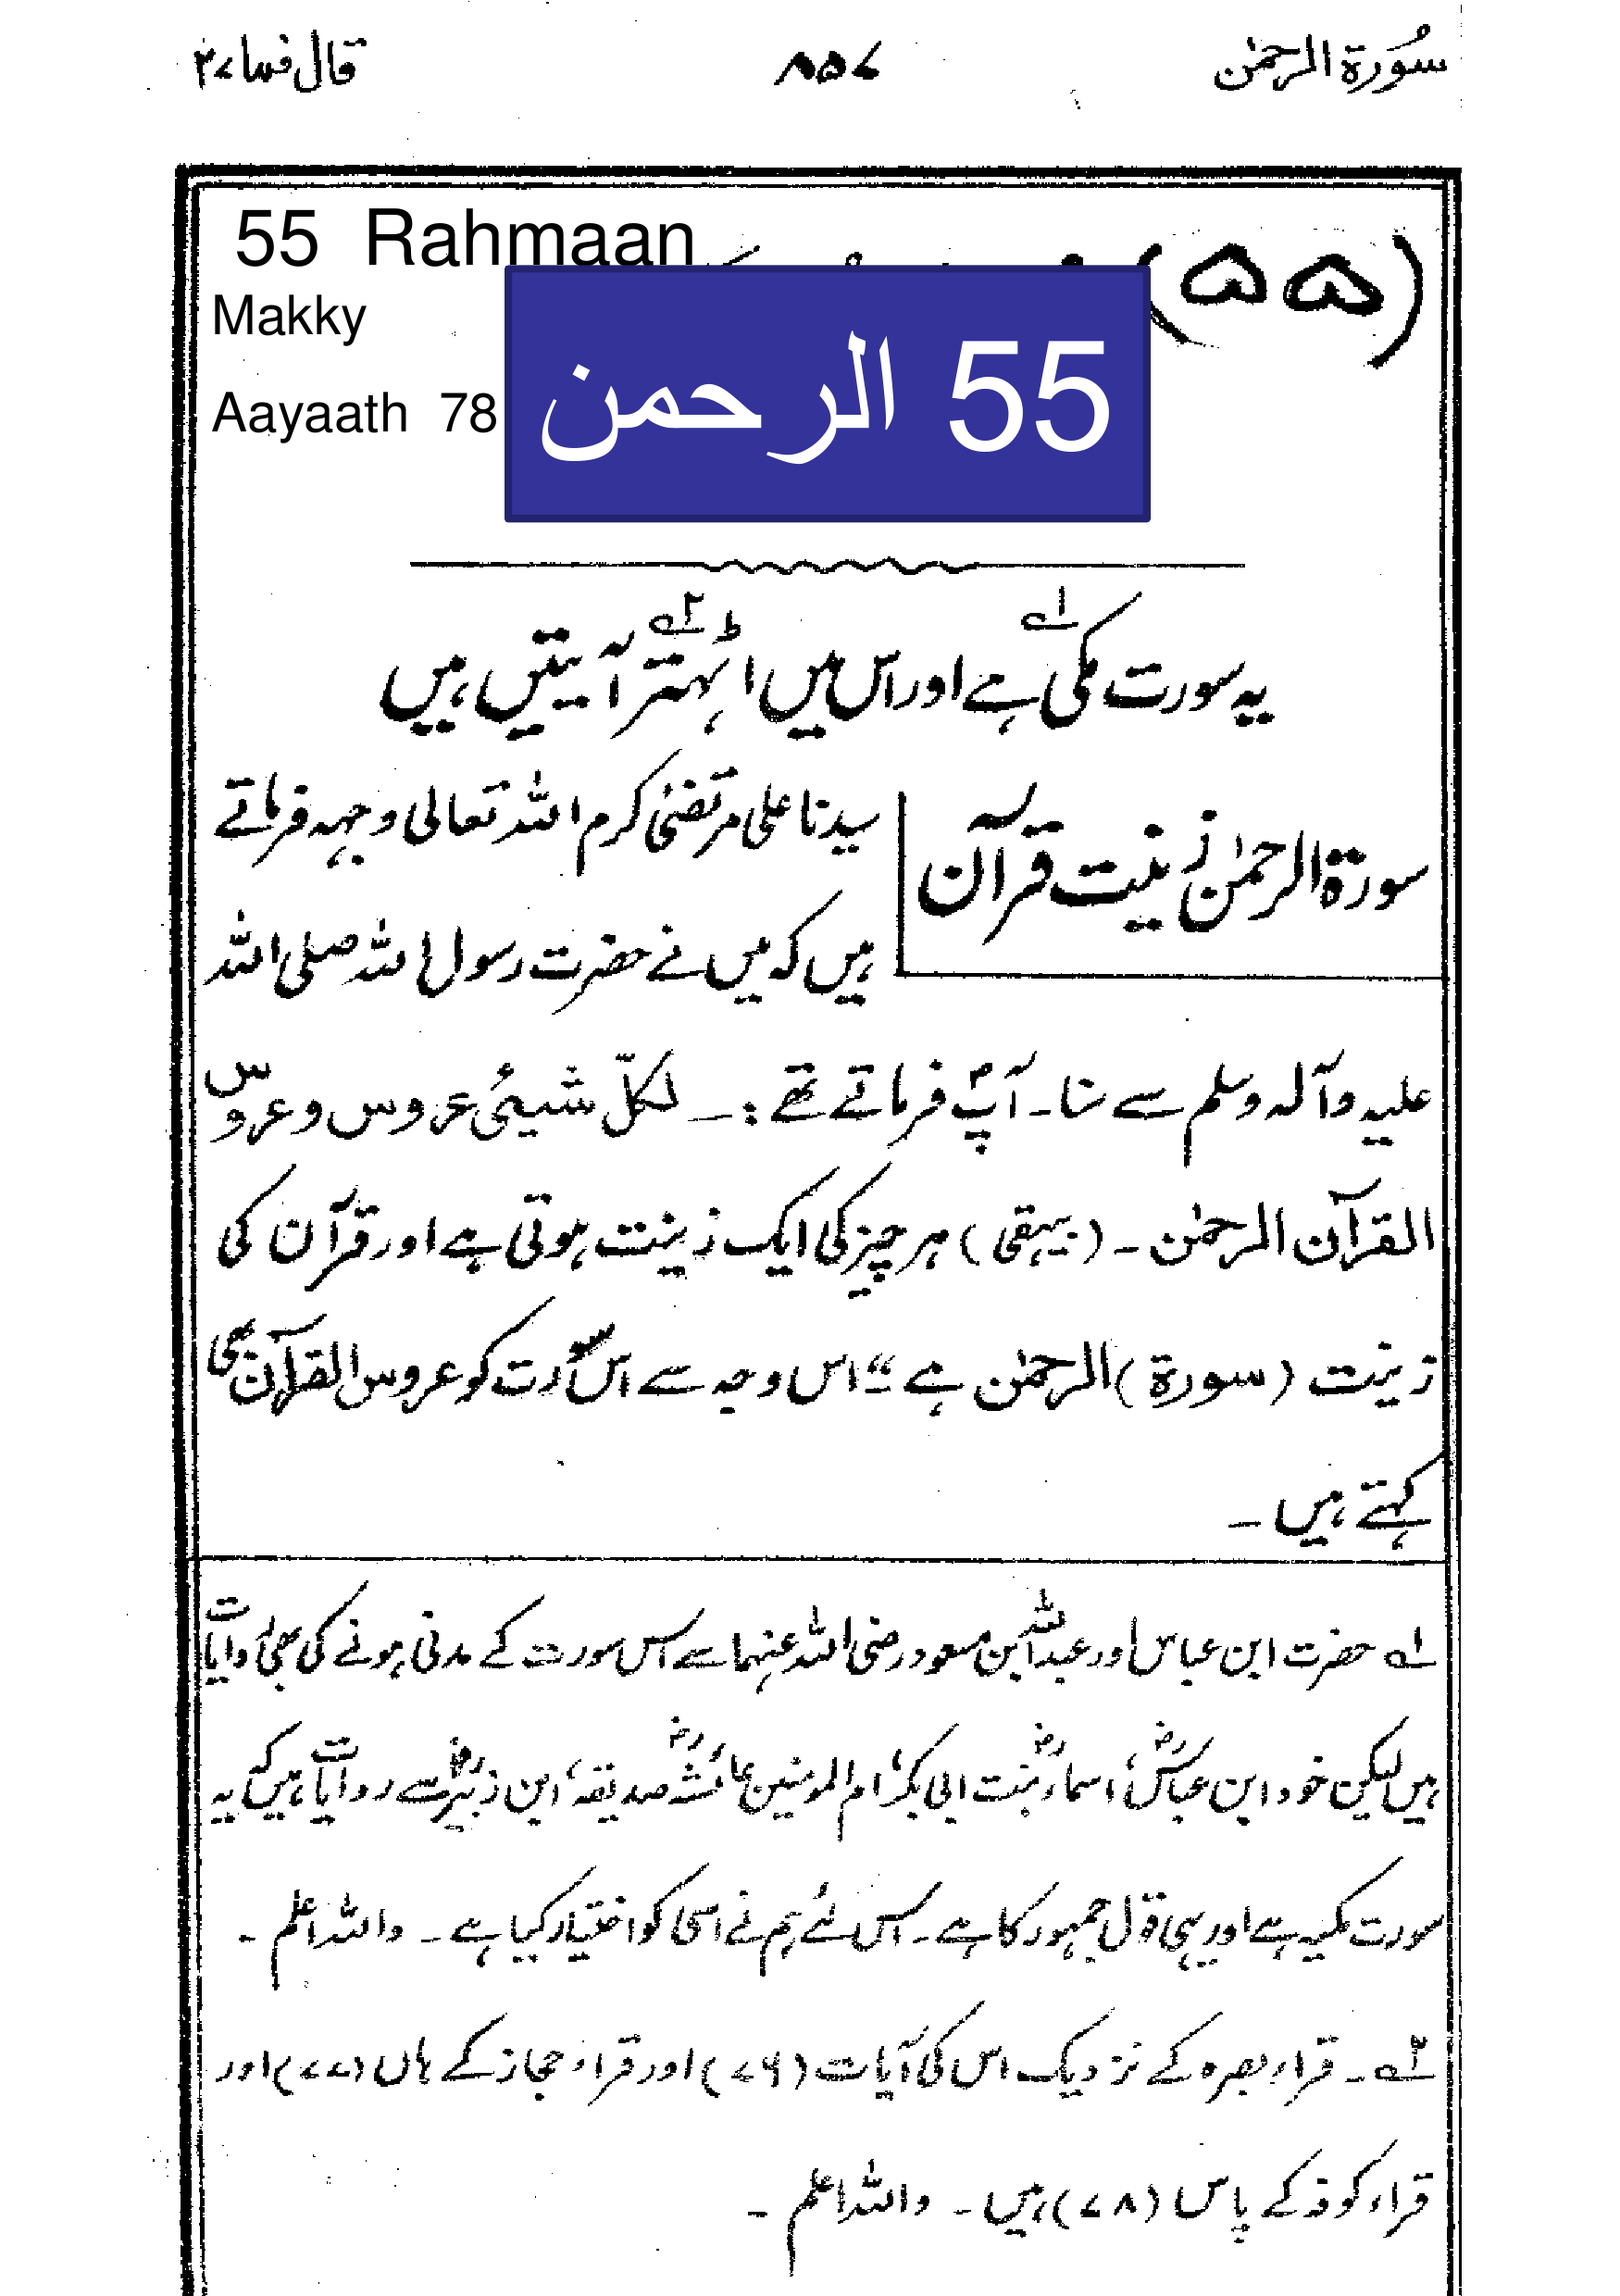 سُورۃ الرحمٰن ۸۵۷ قال فما ۲۷
55 Rahmaan
(۵۵)
Makky
55 الرحمن
Aayaath 78
یہ سورت مکی ہے۱؎ اور اس میں اٹہتر۲؎ آیتیں ہیں
سورۃ الرحمٰن زینت قرآن
سیدنا علی مرتضیٰ کرم اللہ تعالی وجہہ فرماتے
ہیں کہ میں نے حضرت رسول اللہ صلی اللہ
علیہ وآلہ وسلم سے سنا۔ آپؐ فرماتے تھے :۔ لکلّ شیئی عروس وعروس
القرآن الرحمٰن ۔ (بیہقی) ہر چیز کی ایک زینت ہوتی ہے اور قرآن کی
زینت (سورۃ) الرحمٰن ہے“۔ اس وجہ سے اس سورت کو عروس القرآن بھی
کہتے ہیں ۔
۱؎ حضرت ابن عباس اور عبداللہ ابن مسعود رضی اللہ عنہما سے اس سورت کے مدنی ہونے کی بھی روایات
ہیں لیکن خود ابن عباسؓ، اسماءؓ بنت ابی بکر، ام المومنین عائشہؓ صدیقہ، ابن زبیرؓ سے روایات ہیں کہ یہ
سورت مکیہ ہے اور یہی قول جمہور کا ہے ۔ اس لئے ہم نے اسی کو اختیار کیا ہے ۔ واللہ اعلم ۔
۲؎ ۔ قراء بصرہ کے نزدیک اس کی آیات (۷۶) اور قراء حجاز کے ہاں (۷۷) اور
قراء کوفہ کے پاس (۷۸) ہیں ۔ واللہ اعلم ۔